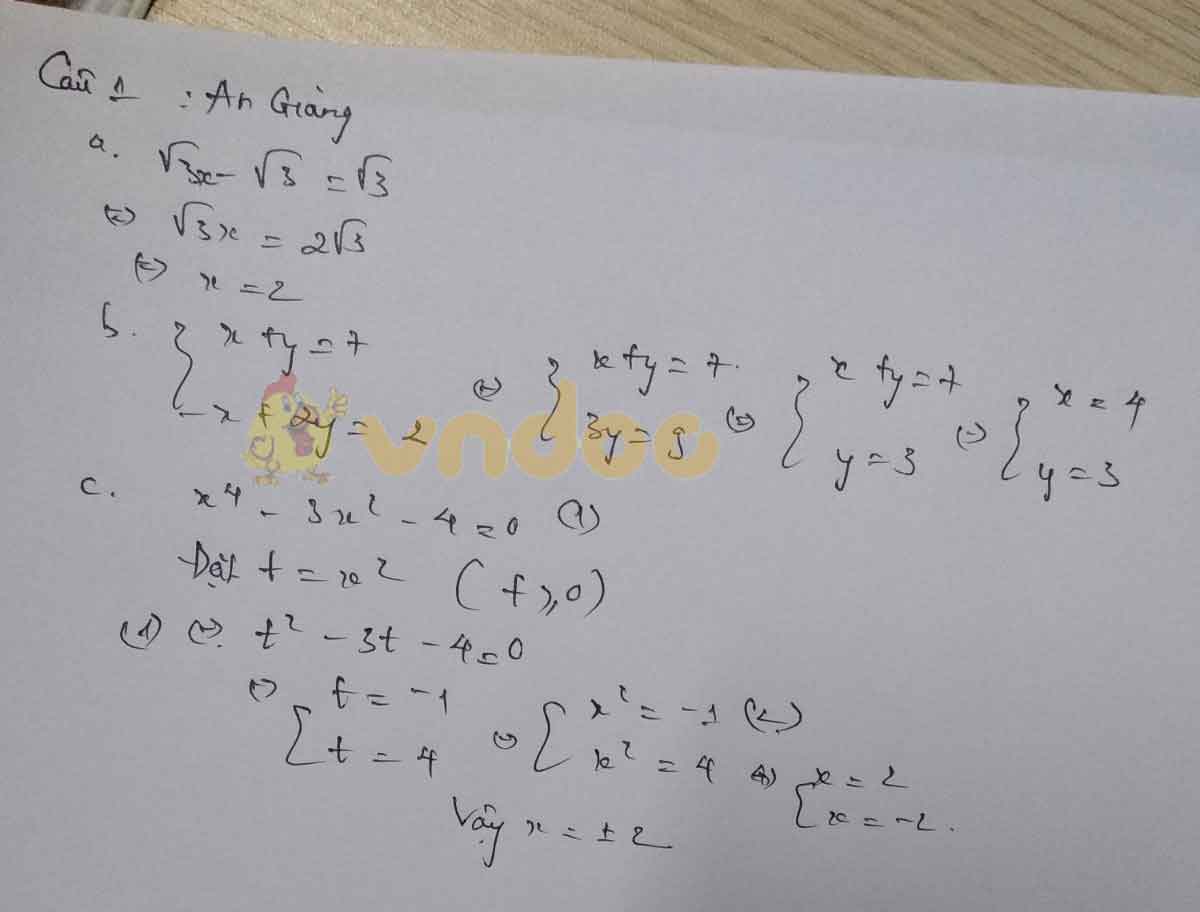 Câu 1 : An Giang
a. √3x - √3 = √3
⇔ √3x = 2√3
⇔ x = 2
b. { x + y = 7 ⇔ { x + y = 7 ⇔ { x + y = 7 ⇔ { x = 4
-x + 2y = 2 3y = 9 y = 3 y = 3
vndoc
c. x⁴ - 3x² - 4 = 0 (1)
Đặt t = x² (t ≥ 0)
(1) ⇔ t² - 3t - 4 = 0
⇔ [ t = -1 ⇔ [ x² = -1 (L)
t = 4 x² = 4 ⇔ [ x = 2
x = -2.
Vậy x = ±2